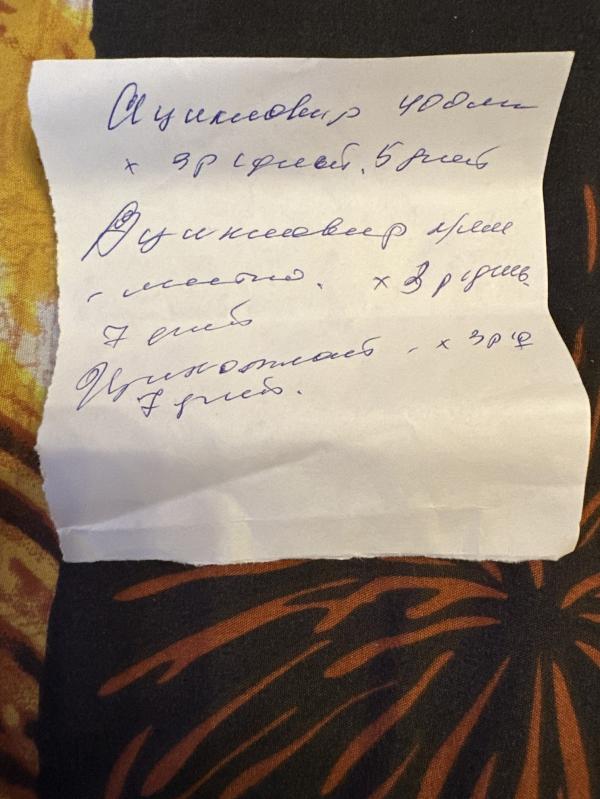 Ацикловир 400мг
х 3р (дней. 5 дней
Ацикловир крем
- местно. х 3 р/день
7 дней
х 3р
7 дней.